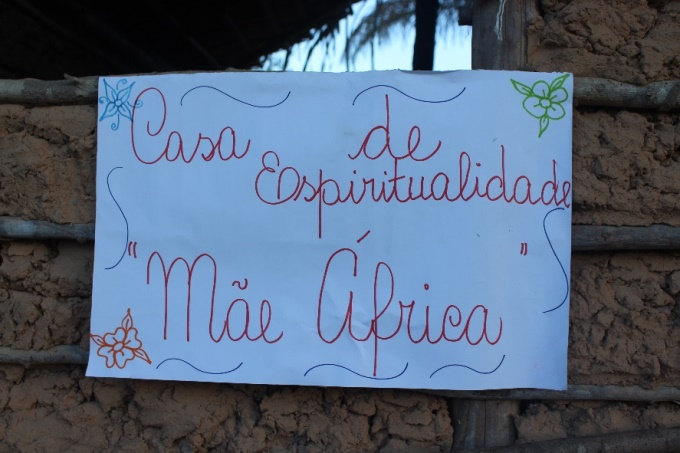 Casa de
Espiritualidade
"Mãe África"